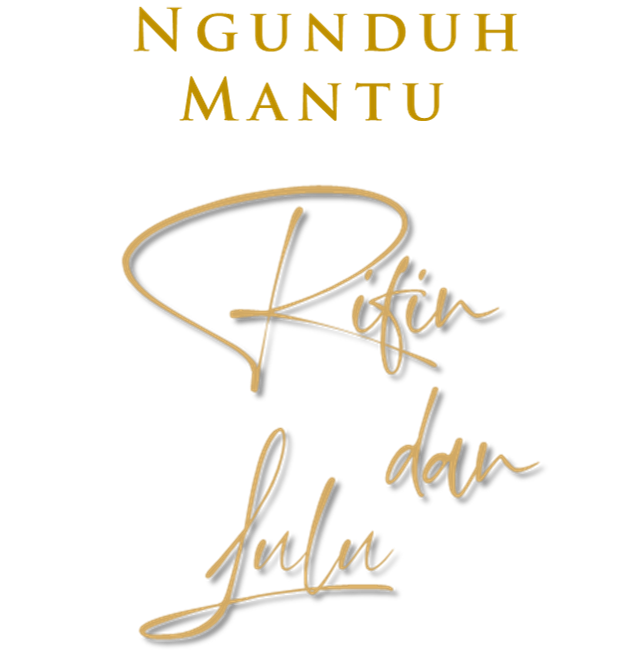 NGUNDUH
MANTU
Rifin
dan
Lulu